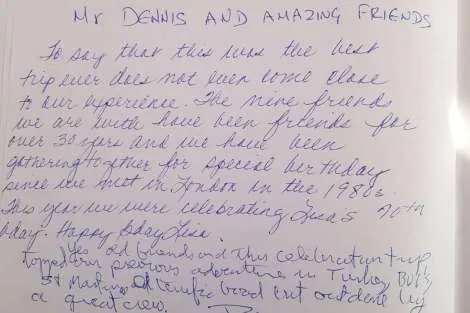 Mr DENNIS AND AMAZING FRIENDS
To say that this was the best
trip ever does not even come close
to our experience. The nine friends
we are with have been friends for
over 30 years and we have been
gathering together for special birthday
since we met in London in the 1980s
This year we were celebrating Lisa's 70th
bday. Happy Bday Lisa.
Yes old friends and this celebration trip
topped our previous adventure in Turkey
a terrific boat but outdone by
a great crew.